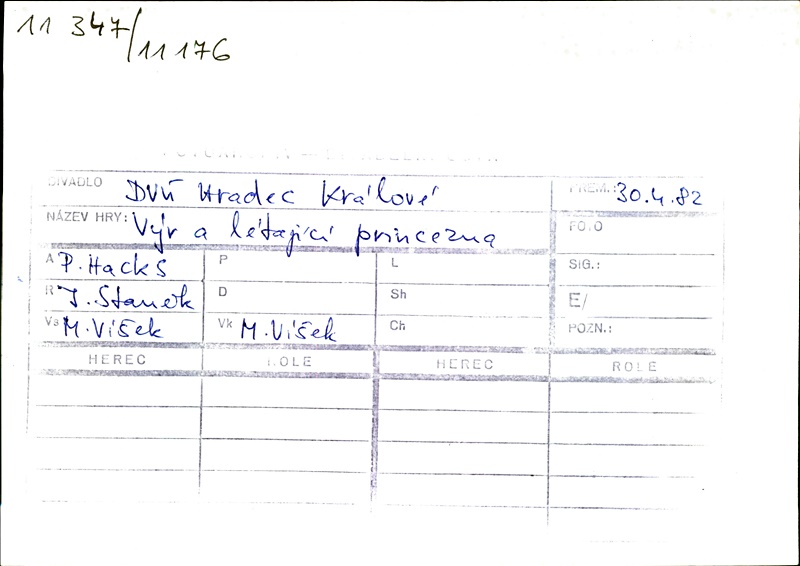 11 347/11 176
DIVADLO DVÚ Hradec Králové PREM.: 30.4.82
NÁZEV HRY: Výr a létající princezna FOTO
A P. Hacks P L SIG.:
R J. Staněk D Sh E/
Vs M. Víšek Vk M. Víšek Ch POZN.:
HEREC ROLE HEREC ROLE